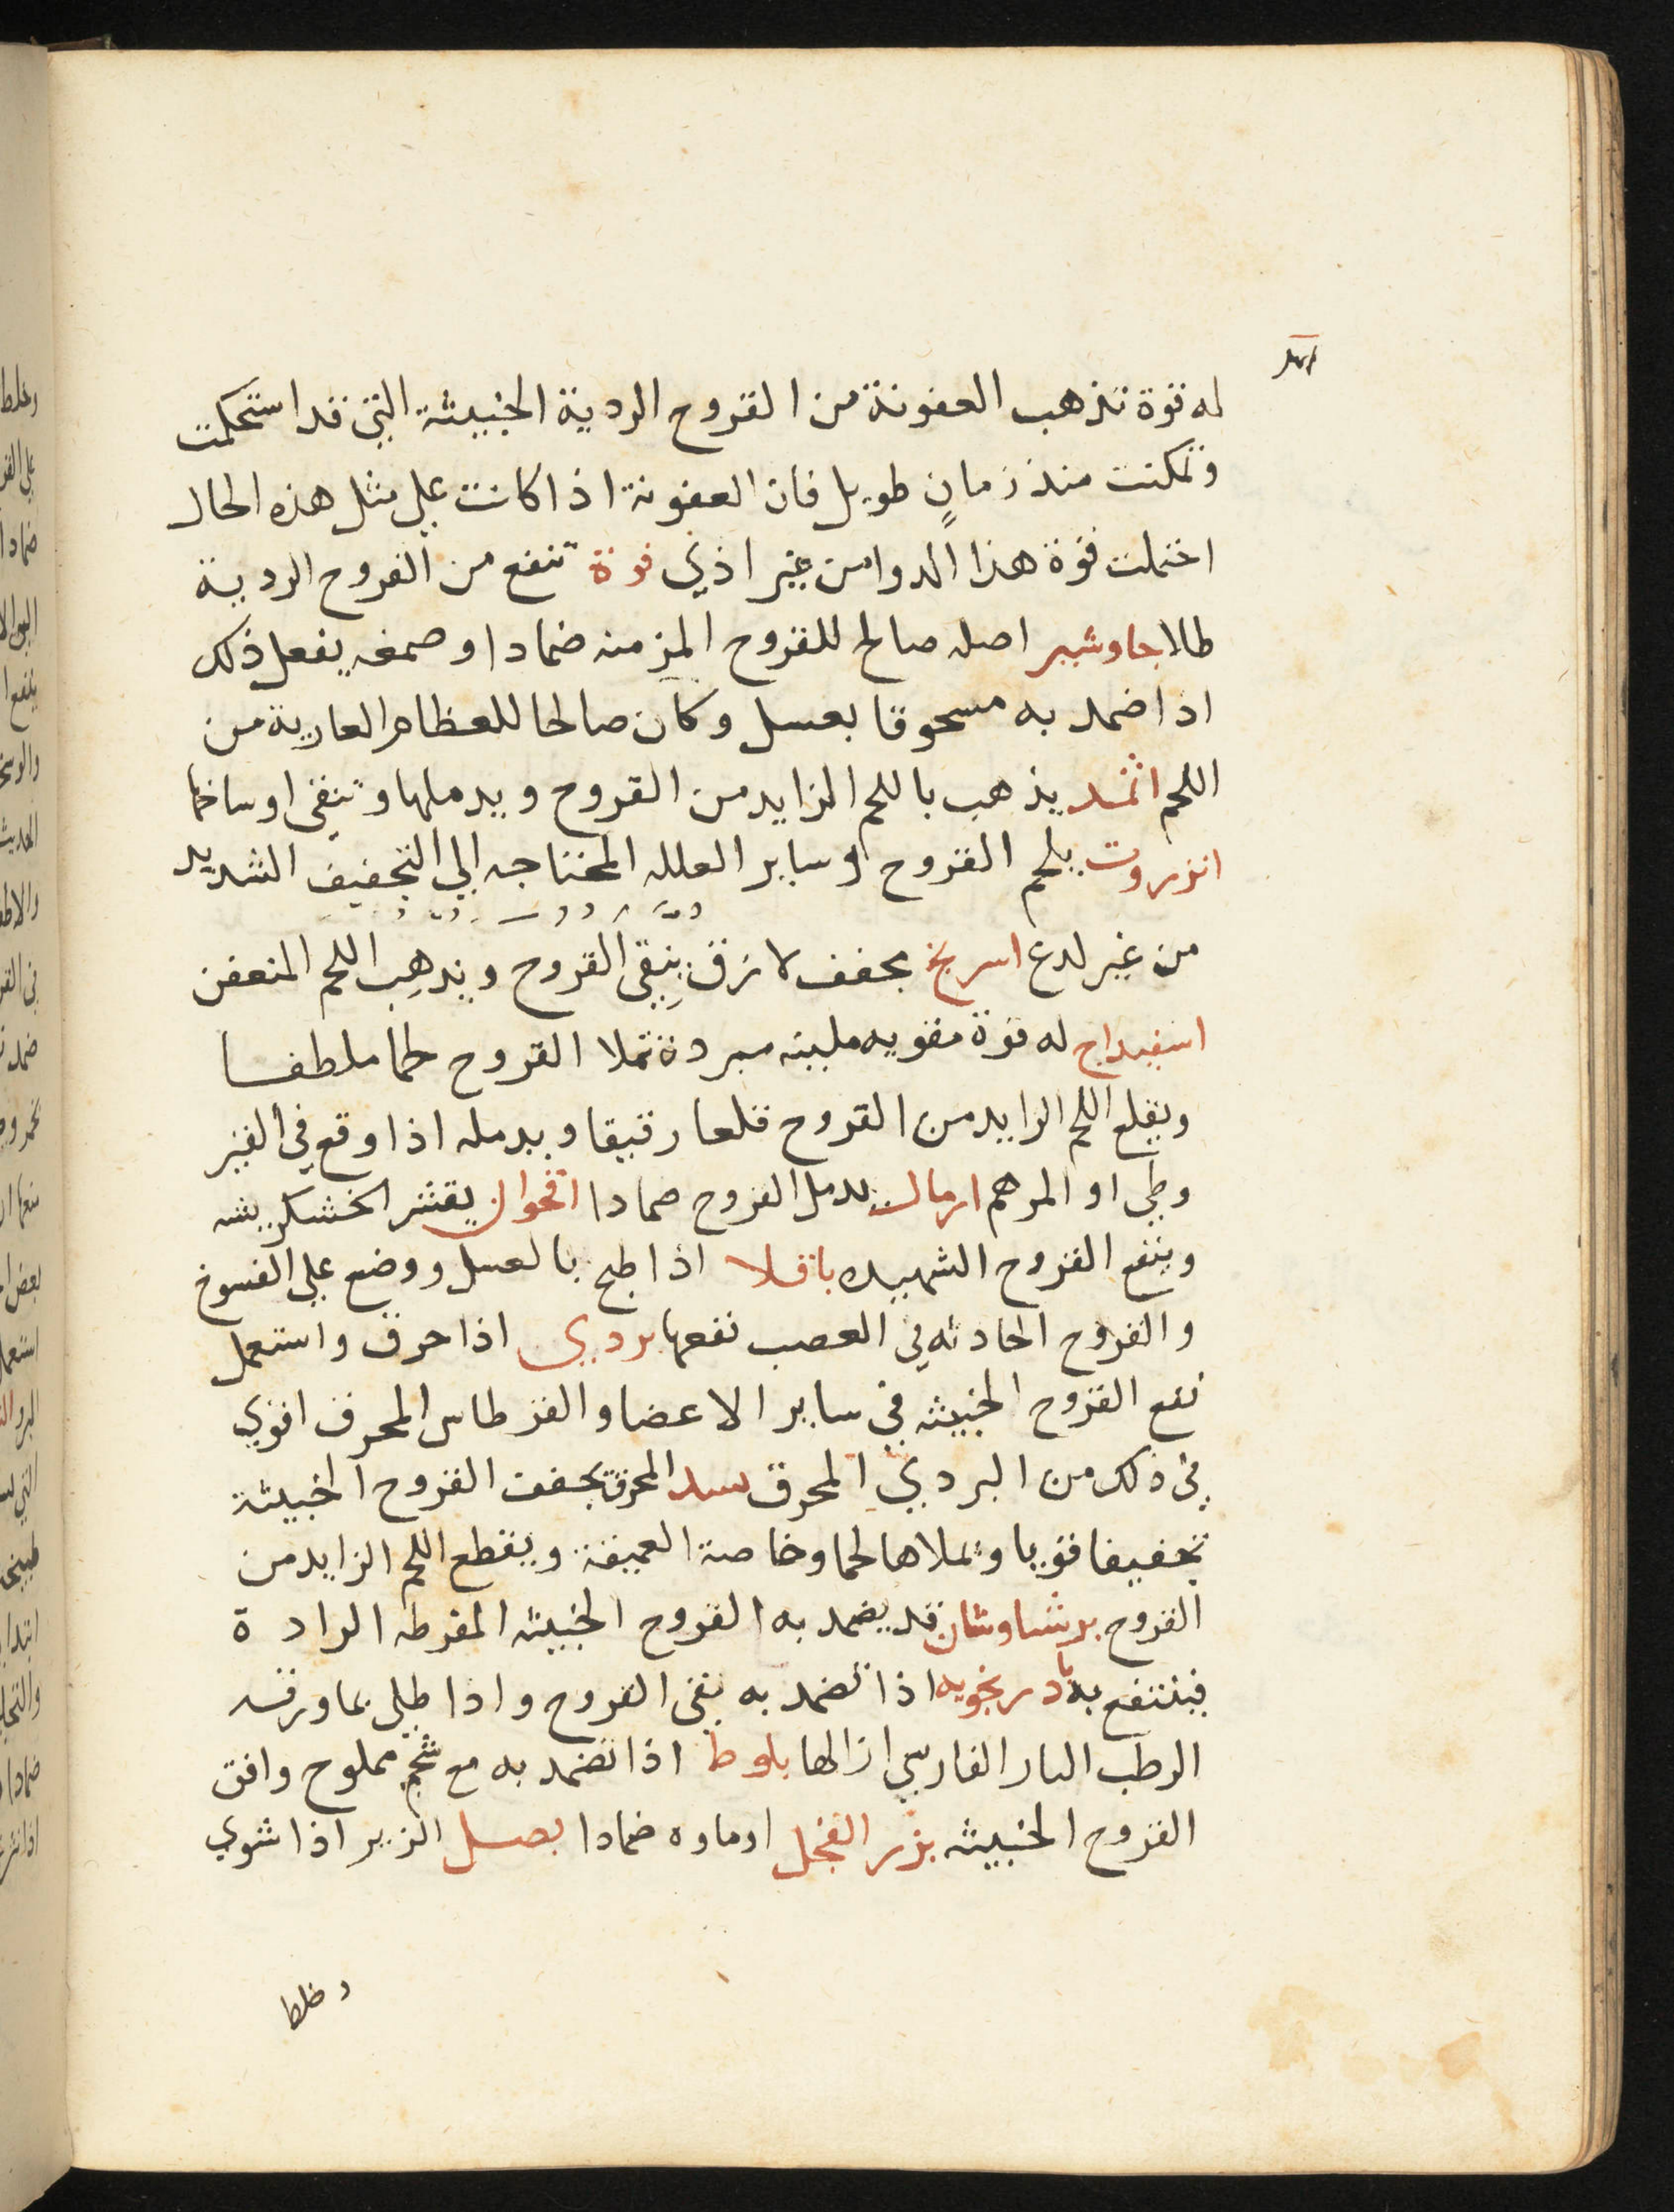 له قوة تذهب العفونة من القروح الردية الخبيثة التي قد استحكمت
وتمكنت منذ زمانٍ طويل فان العفونة اذا كانت علي مثل هذه الحال
احتملت قوة هذا الدوا من غير اذي فوة تنفع من القروح الردية
طلا جاوشير اصله صالح للقروح المزمنه ضمادا وصمغه يفعل ذلك
اذا ضمد به مسحوقا بعسل وكان صالحا للعظام العارية من
اللحم اثمد يذهب باللحم الزايد من القروح ويدملها وتنقي اوساخها
انزروت يلحم القروح وساير العلله المحتاجه الي التجفيف الشديد
من غير لدع اسرنج مجفف لازق ينقي القروح ويذهب اللحم المتعفن
اسفيداج له قوة مغويه ملينه مبردة تملا القروح لحما ملطفا
ويقلع اللحم الزايد من القروح قلعا رقيقا ويدمله اذا وقع في القير
وطي او المرهم ارمال يدمل القروح ضمادا اقحوان يقشر الخشكريشه
وينفع القروح الشهيده باقلا اذا طبخ بالعسل ووضع علي الفسوخ
والقروح الحادثه في العصب نفعها بردي اذا حرق واستعمل
نفع القروح الخبيثه في ساير الاعضا والقرطاس المحرق اقوي
في ذلك من البردي المحرق بسد المحرق يجفف القروح الخبيثة
تجفيفا قويا ويملاها لحما وخاصة العميقة ويقطع اللحم الزايد من
القروح برشاوشان قد يضمد به القروح الخبيثه المفرطه الرادة
فينتفع به بادرنجويه اذا تضمد به نقي القروح واذا طلي بما ورقه
الرطب النار الفارسي ازالها بلوط اذا تضمد به مع شحم مملوح وافق
القروح الخبيثه بزر الفجل او ماوه ضمادا بصل الزير اذا شوي
وخلط